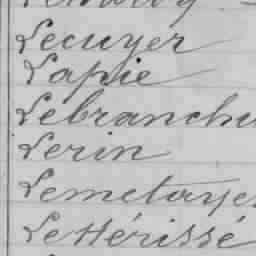 Lecuyer
Lapie
Lebranchu
Lerin
Lemetayer
Le Hérissé